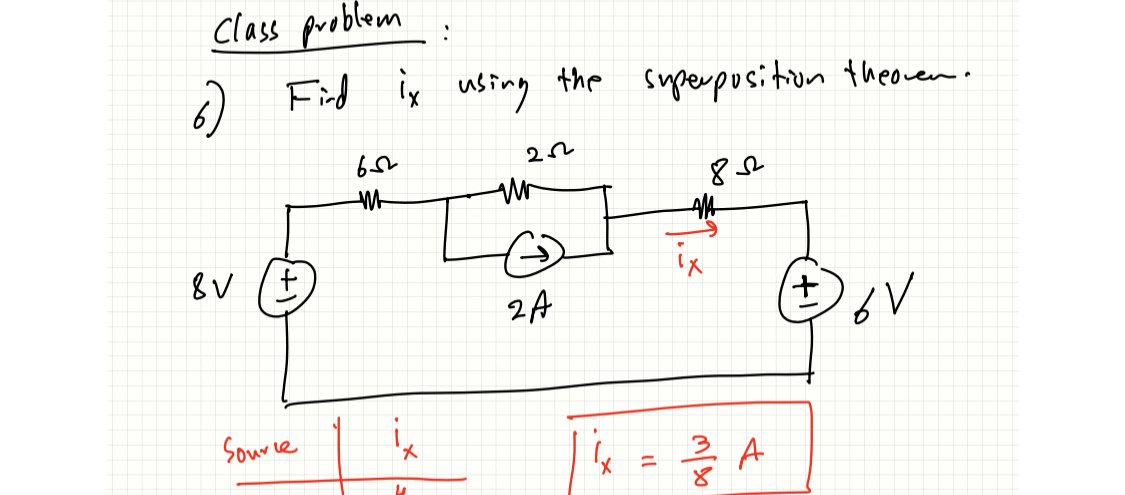 Class problem :
6) Find ix using the superposition theorem.
6Ω 2Ω 8Ω
ix
8V + − + − 6V
2A
Source ix ix = 3/8 A